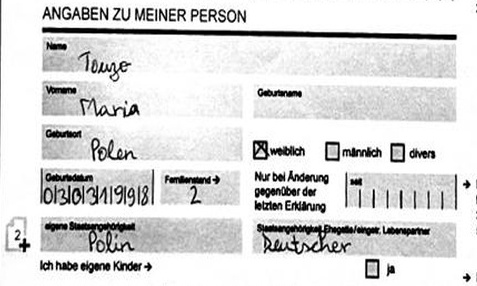 ANGABEN ZU MEINER PERSON
Name
Touze
Vorname
Maria
Geburtsname
Geburtsort
Polen
weiblich männlich divers
Geburtsdatum
03031998
Familienstand →
2
Nur bei Änderung
gegenüber der
letzten Erklärung
seit
eigene Staatsangehörigkeit
Polin
Staatsangehörigkeit Ehegatte/eingetr. Lebenspartner
Deutscher
2
Ich habe eigene Kinder → ja